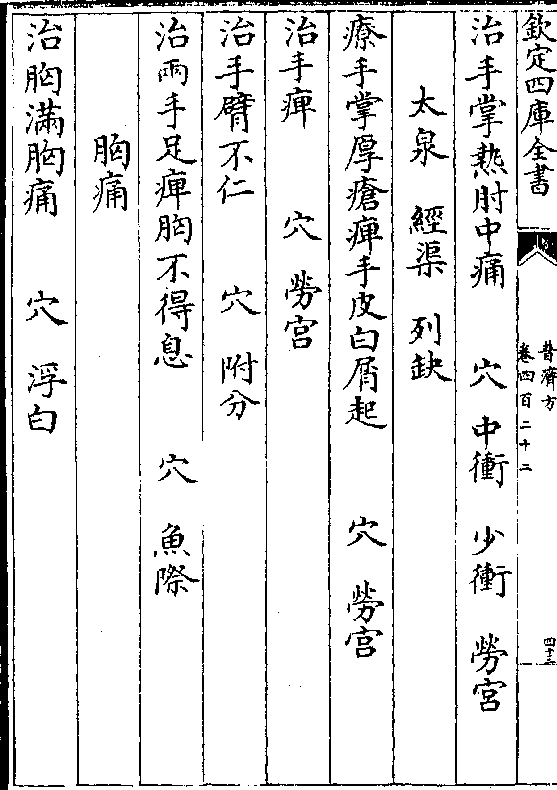 欽定四庫全書
普濟方
卷四百二十二
四十三
治手掌熱肘中痛　穴　中衝　少衝　勞宮
太泉　經渠　列缺
療手掌厚瘡痺手皮白屑起　穴　勞宮
治手痺　穴　勞宮
治手臂不仁　穴　附分
治兩手足痺胸不得息　穴　魚際
胸痛
治胸滿胸痛　穴　浮白